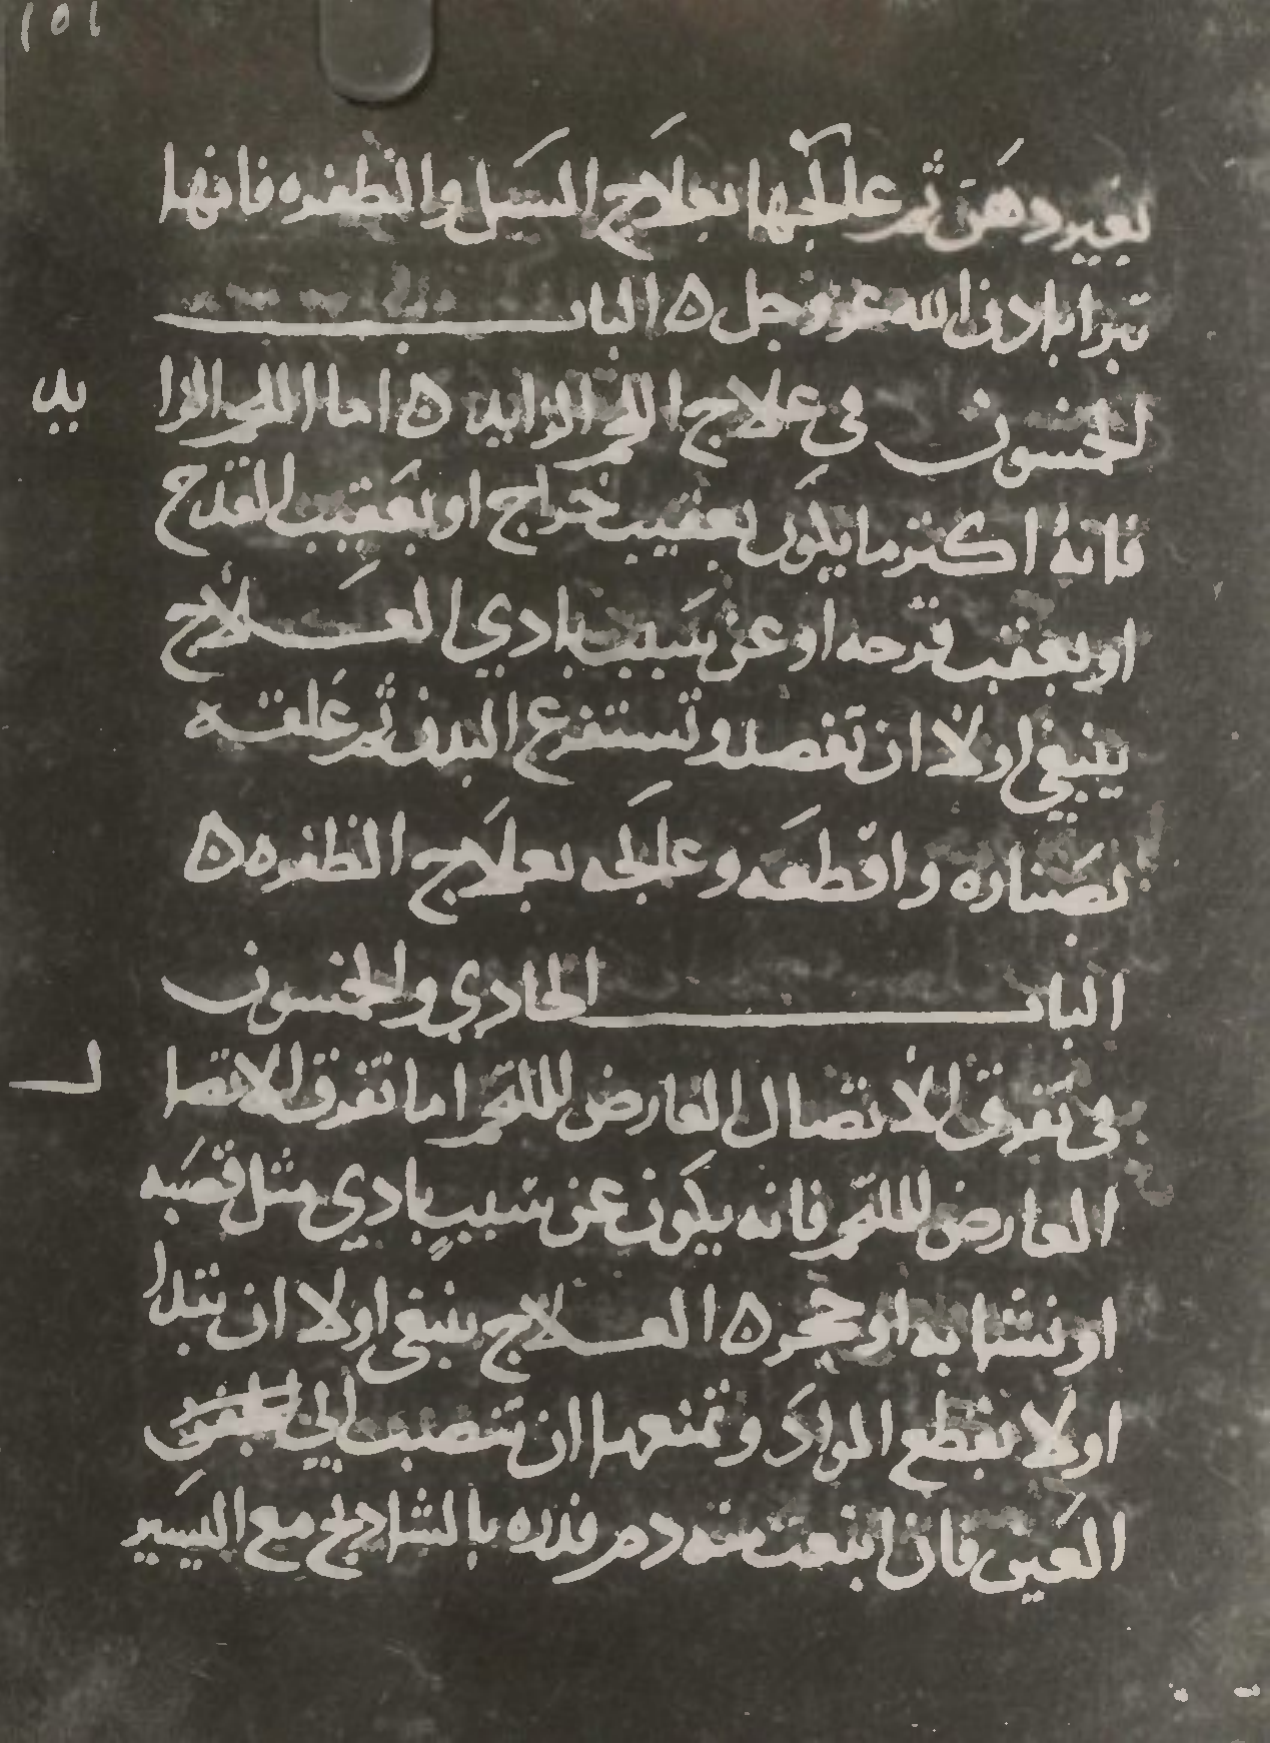 ١٥١
بغير دهن ثم علجها بعلاج السبل والظفره فانها
تبرا باذن الله عز وجل ٥ الباب
الخمسون في علاج اللحم الزايد ٥ اما اللحم الزا
يد
فانه اكثر ما يكون بعقيب خراج او بعقيب للقدح
او بعقب قرحه او عن سبب بادي العلاج
ينبغي اولا ان تفصد وتستفرغ البدن ثم علقه
بصناره واقطعه وعلجه بعلاج الظفره ٥
الباب الحادي والخمسون
في تفرق الاتصال العارض للحم اما تفرق الاتصا
ل
العارض للحم فانه يكون عن سبب بادي مثل قصبه
او نشابه او حجر ٥ العلاج ينبغي اولا ان تبدا
اولا بقطع المواد وتمنعها ان تنصب الي
العين فان انبعث منه دم فذره بالشادنج مع اليسير